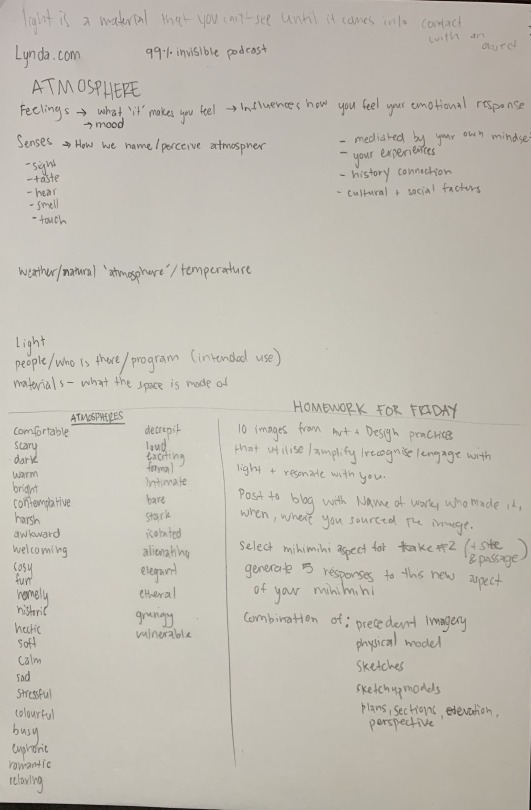 light is a material that you can't see until it comes into contact
with an
object
Lynda.com 99% invisible podcast
ATMOSPHERE
Feelings → what 'it' makes you feel → Influences how you feel your emotional response
→ mood
Senses → How we name/perceive atmospher
- sight
- taste
- hear
- smell
- touch
- mediated by your own mindset
- your experiences
- history connection
- cultural + social factors
weather/natural 'atmosphere'/temperature
Light
people/who is there/program (intended use)
materials - what the space is made of
ATMOSPHERES
comfortable
scary
dark
warm
bright
contemplative
harsh
awkward
welcoming
cosy
fun
homely
historic
hectic
soft
calm
sad
stressful
colourful
busy
euphoric
romantic
relaxing
decrepit
loud
exciting
formal
intimate
bare
stark
isolated
alienating
elegant
etheral
grungy
vulnerable
HOMEWORK FOR FRIDAY
10 images from Art + Design practices
that utilise/amplify/recognise/engage with
light + resonate with you.
Post to blog with Name of work, who made it,
when, where you sourced the image.
Select mihimihi aspect for take #2 (+ site
& passage)
generate 5 responses to this new aspect
of your mihimihi
Combination of: precedent imagery
physical model
sketches
sketchupmodels
plans, sections, elevation,
perspective